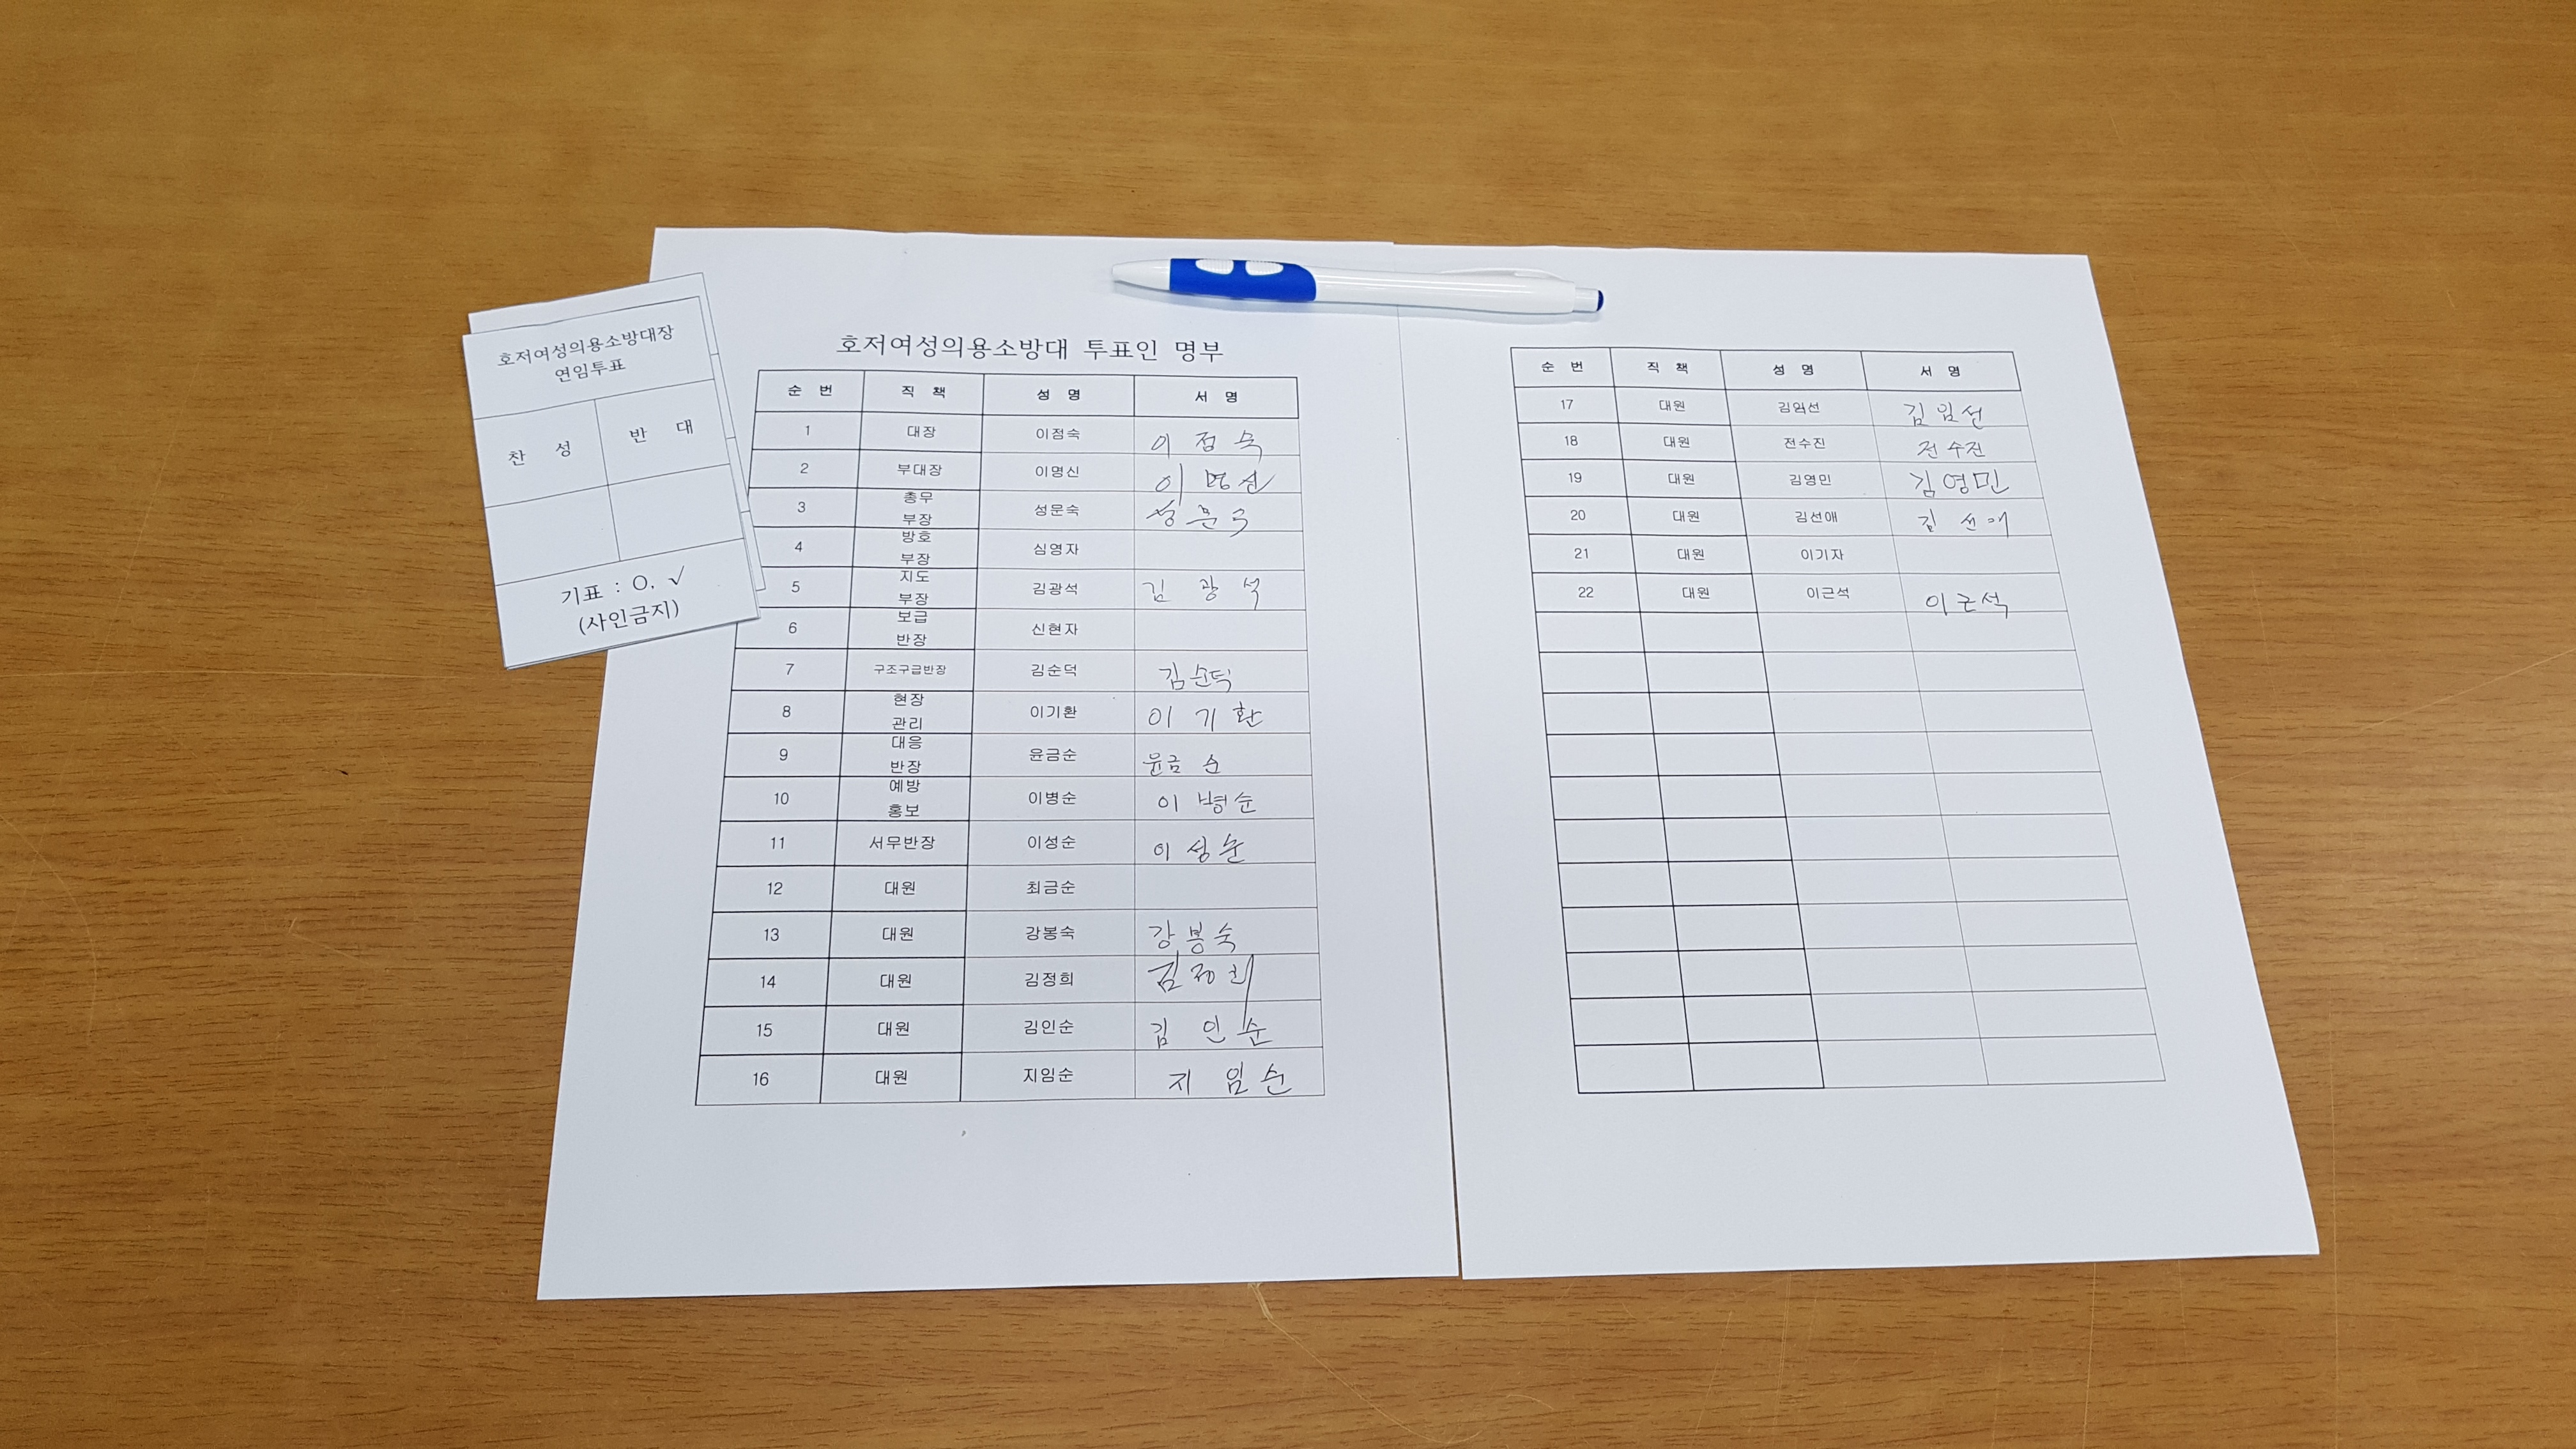 호저여성의용소방대장
연임투표
찬 성 반 대
기표 : O, √
(사인금지)
호저여성의용소방대 투표인 명부
순 번 직 책 성 명 서 명
1 대장 이점숙 이 점 숙
2 부대장 이명신 이 명 신
3 총무 부장 성문숙 성 문 숙
4 방호 부장 심영자
5 지도 부장 김광석 김 광 석
6 보급 반장 신현자
7 구조구급반장 김순덕 김순덕
8 현장 관리 이기환 이 기 환
9 대응 반장 윤금순 윤금 순
10 예방 홍보 이병순 이 병순
11 서무반장 이성순 이 성 순
12 대원 최금순
13 대원 강봉숙 강 봉 숙
14 대원 김정희 김정희
15 대원 김인순 김 인 순
16 대원 지임순 지 임 순
순 번 직 책 성 명 서 명
17 대원 김임선 김 임 선
18 대원 전수진 전 수진
19 대원 김영민 김영민
20 대원 김선애 김 선 애
21 대원 이기자
22 대원 이근석 이 근 석